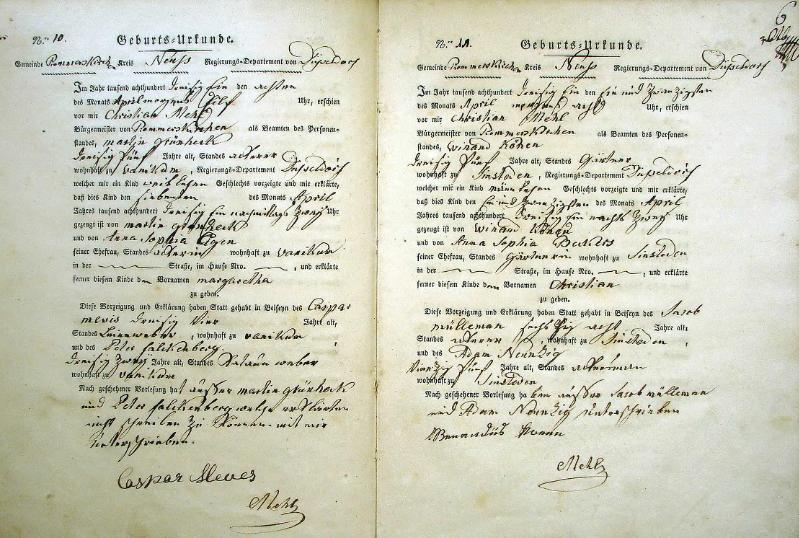 No. 10. Geburts-Urkunde.
Gemeinde Rommerskirch Kreis Neuss Regierungs-Departement von Düsseldorf
Im Jahr tausend achthundert dreisig Ein den achten
des Monats April morgens Eilf Uhr, erschien
vor mir Christian Mehl
Bürgermeister von Rommerskirchen als Beamten des Personen-
standes, martin grünheck
dreisig fünf Jahre alt, Standes ackerer
wohnhaft zu vanikum, Regierungs-Departement Düsseldorf
welcher mir ein Kind weiblichen Geschlechts vorzeigte und mir erklärte,
daß dies Kind den siebenten des Monats April
Jahres tausend achthundert dreisig Ein nachmittags zwey Uhr
gezeugt ist von martin grünheck
und von Anna Sophia Eigen
seiner Ehefrau, Standes ackerin wohnhaft zu vanikum
in der Straße, im Hause Nro. , und erklärte
seiner dieses Kinde den Vornamen margaretha
zu geben.
Diese Vorzeigung und Erklärung haben Statt gehabt in Beiseyn des Caspar
mevis dreisig vier Jahre alt,
Standes Leinenweber, wohnhaft zu vanikum
und des Peter falckenberg
dreisig zwey Jahre alt, Standes weber
wohnhaft zu vanikum
Nach geschehener Vorlesung ha ausser martin grünheck
und Peter falckenberg welche erklärten
nicht schreiben zu können mit mir
unterschrieben.
Caspar Meves
Mehl
No. 11. Geburts-Urkunde.
Gemeinde Rommerskirch Kreis Neuss Regierungs-Departement von Düsseldorf
Im Jahr tausend achthundert dreisig Ein den Ein und zwanzigsten
des Monats April morgens acht Uhr, erschien
vor mir Christian Mehl
Bürgermeister von Rommerskirchen als Beamten des Personen-
standes, winand Köhen
dreisig fünf Jahre alt, Standes Gärtner
wohnhaft zu Sinsteden, Regierungs-Departement Düsseldorf
welcher mir ein Kind männlichen Geschlechts vorzeigte und mir erklärte,
daß dies Kind den Ein und zwanzigsten des Monats April
Jahres tausend achthundert dreisig Ein nachts zwey Uhr
gezeugt ist von winand Köhen
und von Anna Sophia Beckers
seiner Ehefrau, Standes Gärtnerin wohnhaft zu Sinsteden
in der Straße, im Hause Nro. , und erklärte
seiner dieses Kinde den Vornamen Christian
zu geben.
Diese Vorzeigung und Erklärung haben Statt gehabt in Beiseyn des Jacob
mülleman sechszig acht Jahre alt,
Standes ackerer, wohnhaft zu Sinsteden,
und des Adam Neunzig
vierzig fünf Jahre alt, Standes ackersman
wohnhaft zu Sinsteden
Nach geschehener Vorlesung haben ausser Jacob mülleman
und Adam Neunzig unterschrieben
Mehl